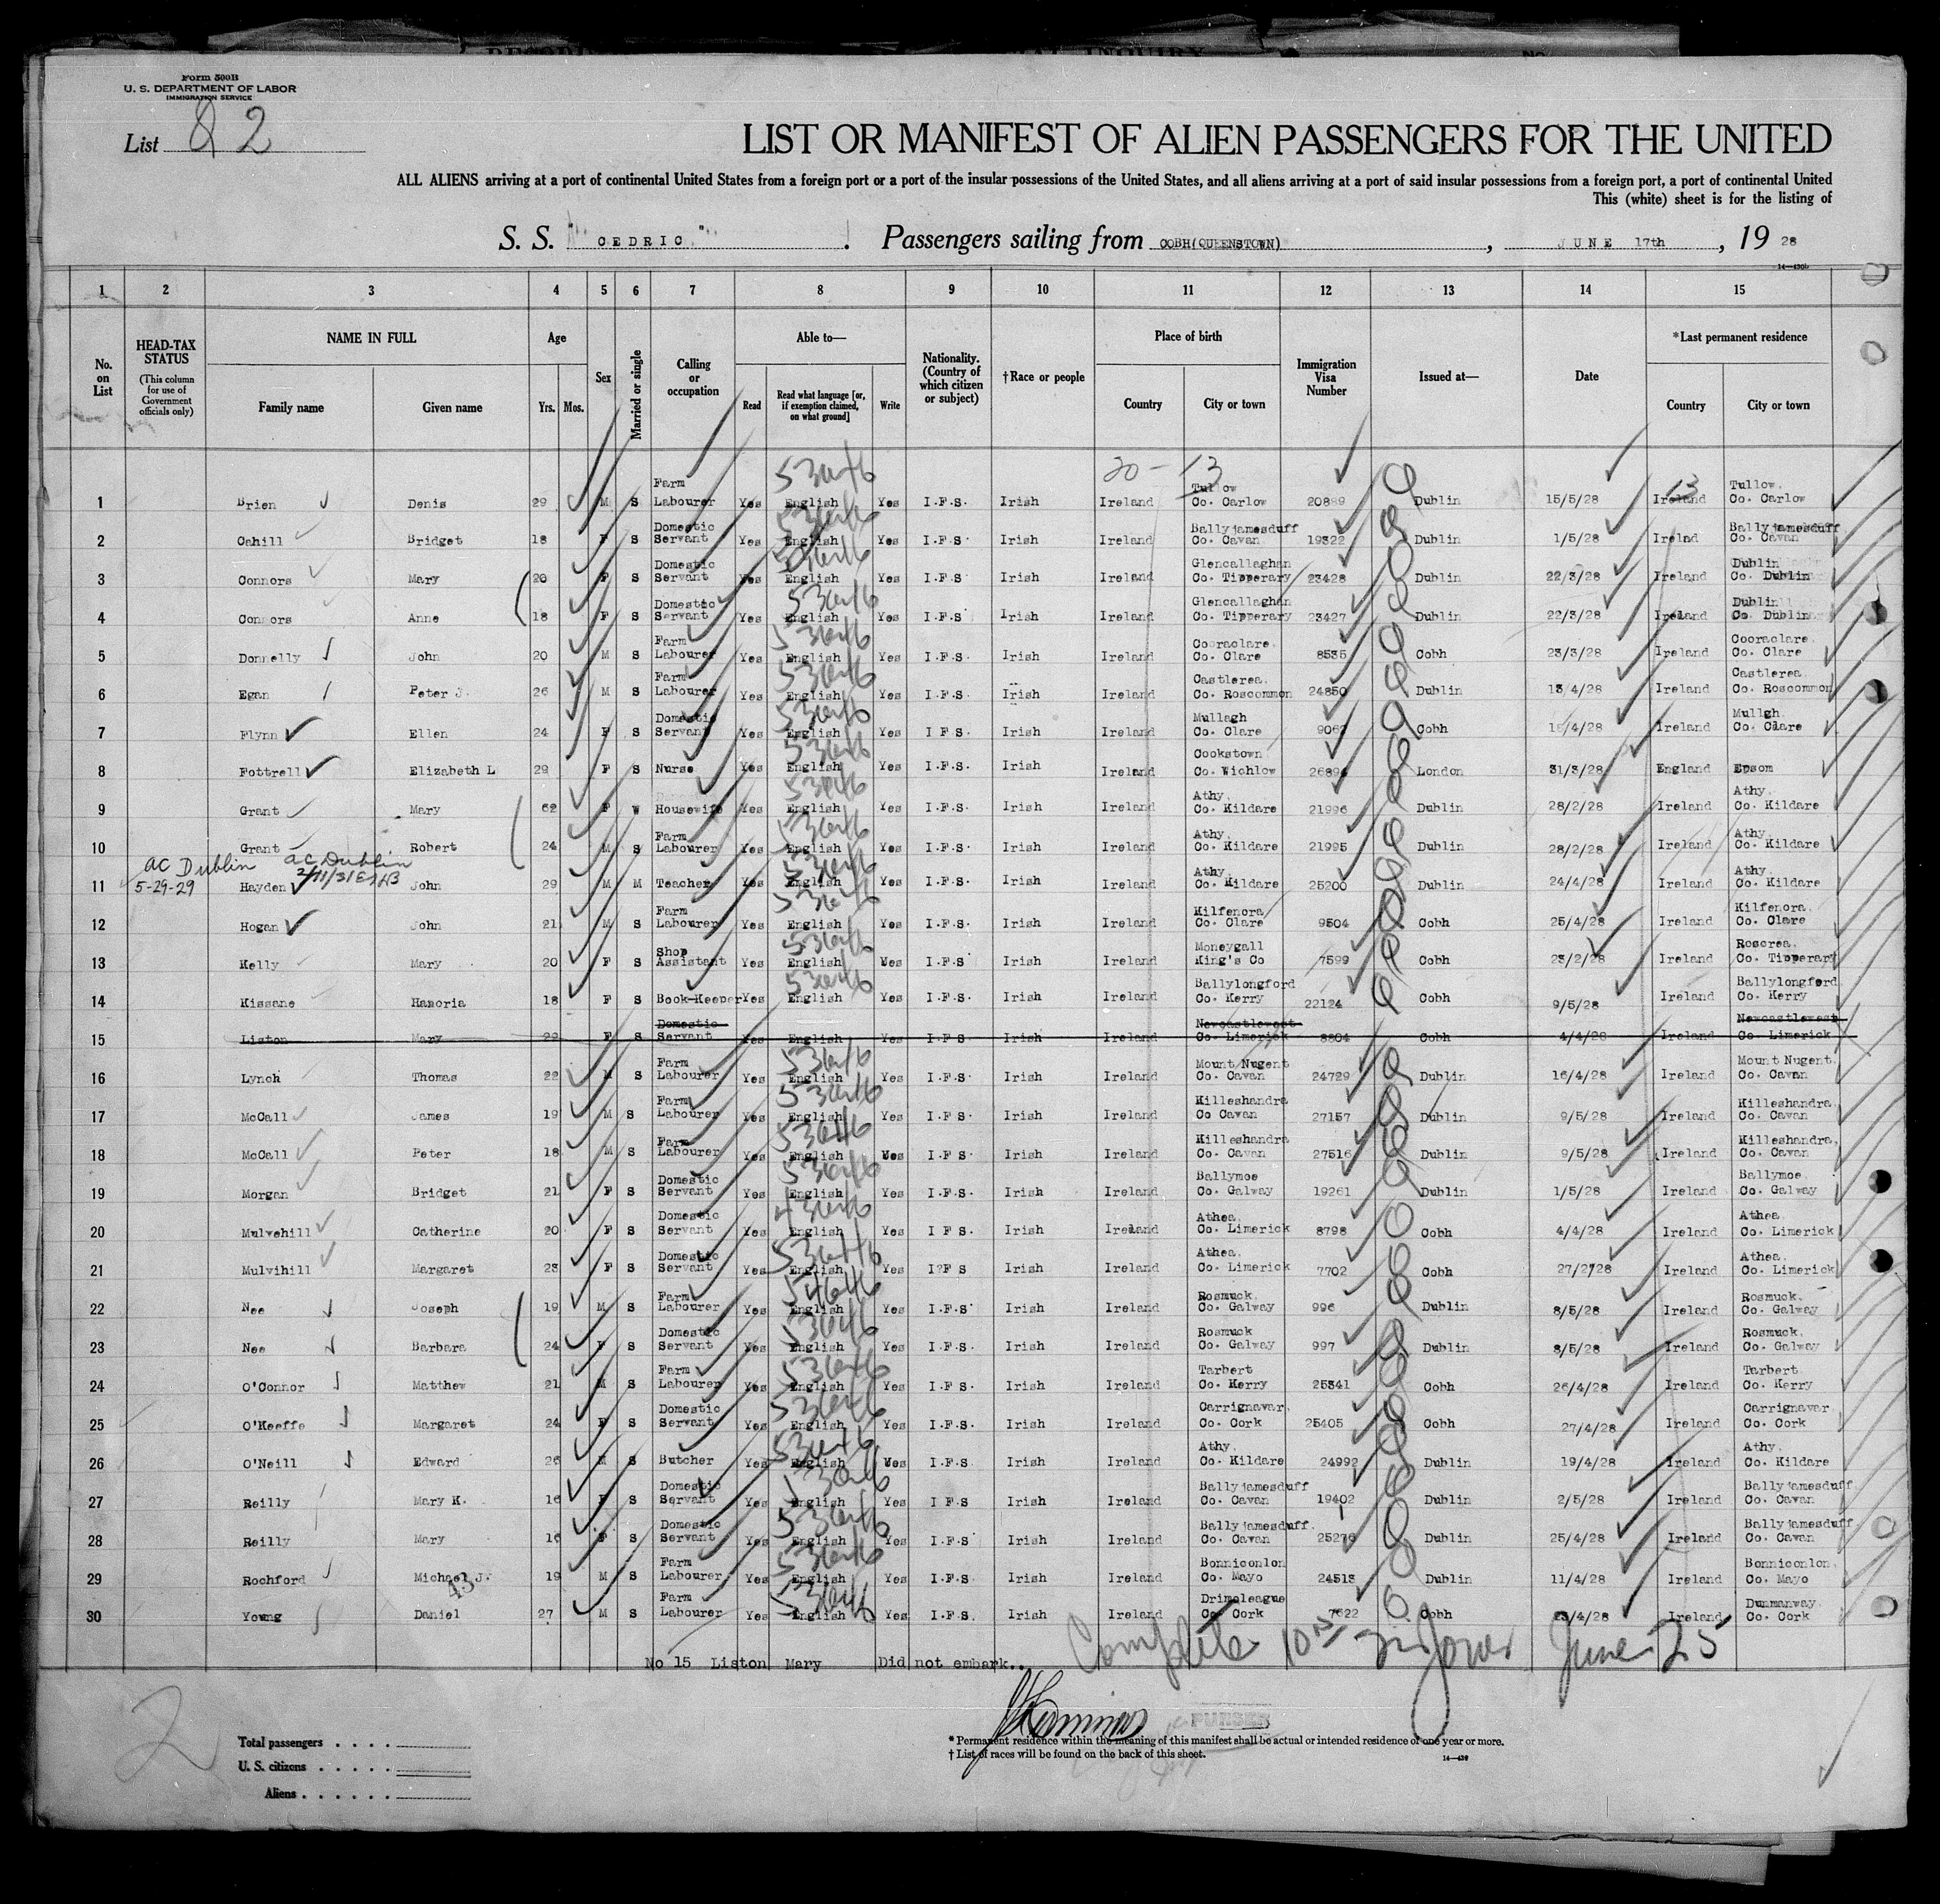 Form 500B
U. S. DEPARTMENT OF LABOR
IMMIGRATION SERVICE
List 82
LIST OR MANIFEST OF ALIEN PASSENGERS FOR THE UNITED
ALL ALIENS arriving at a port of continental United States from a foreign port or a port of the insular possessions of the United States, and all aliens arriving at a port of said insular possessions from a foreign port, a port of continental United
This (white) sheet is for the listing of
S. S. "CEDRIC" Passengers sailing from COBH(QUEENSTOWN), JUNE 17th, 19 28
1 2 3 4 5 6 7 8 9 10 11 12 13 14 15
No. on List
HEAD-TAX STATUS (This column for use of Government officials only)
NAME IN FULL Family name Given name
Age Yrs. Mos.
Sex
Married or single
Calling or occupation
Able to— Read Read what language [or, if exemption claimed, on what ground] Write
Nationality. (Country of which citizen or subject)
†Race or people
Place of birth Country City or town
Immigration Visa Number
Issued at—
Date
*Last permanent residence Country City or town
20 - 13
13
1 Brien Denis 29 M S Farm Labourer Yes English Yes I.F.S. Irish Ireland Tullow Co. Carlow 20889 Dublin 15/5/28 Ireland Tullow. Co. Carlow
2 Cahill Bridget 18 F S Domestic Servant Yes English Yes I.F.S. Irish Ireland Ballyjamesduff Co. Cavan 19322 Dublin 1/5/28 Irelnd Ballyjamesduff Co. Cavan
3 Connors Mary 20 F S Domestic Servant Yes English Yes I.F.S. Irish Ireland Glencallaghan Co. Tipperary 23428 Dublin 22/3/28 Ireland Dublin Co. Dublin
4 Connors Anne 18 F S Domestic Servant Yes English Yes I.F.S. Irish Ireland Glencallaghan Co. Tipperary 23427 Dublin 22/3/28 Ireland Dublin Co. Dublin
5 Donnelly John 20 M S Farm Labourer Yes English Yes I.F.S. Irish Ireland Cooraclare. Co. Clare 8535 Cobh 23/3/28 Ireland Cooraclare. Co. Clare
6 Egan Peter J. 26 M S Farm Labourer Yes English Yes I.F.S. Irish Ireland Castlerea. Co. Roscommon 24850 Dublin 13/4/28 Ireland Castlerea. Co. Roscommon
7 Flynn Ellen 24 F S Domestic Servant Yes English Yes I F S. Irish Ireland Mullagh Co. Clare 9062 Cobh /4/28 Ireland Mullgh. Co. Clare
8 Fottrell Elizabeth L 29 F S Nurse Yes English Yes I.F.S. Irish Ireland Cookstown Co. Wichlow 26894 London 31/3/28 England Epsom
9 Grant Mary 62 F W Housewife Yes English Yes I.F.S. Irish Ireland Athy. Co. Kildare 21996 Dublin 28/2/28 Ireland Athy. Co. Kildare
10 Grant Robert 24 M S Farm Labourer Yes English Yes I.F.S. Irish Ireland Athy Co. Kildare 21995 Dublin 28/2/28 Ireland Athy. Co. Kildare
AC Dublin ac Dublin
5-29-29
11 Hayden John 29 M M Teacher Yes English Yes I.F.S. Irish Ireland Athy. Co. Kildare 25200 Dublin 24/4/28 Ireland Athy. Co. Kildare
12 Hogan John 21 M S Farm Labourer Yes English Yes I.F.S. Irish Ireland Kilfenora Co. Clare 9504 Cobh 25/4/28 Ireland Kilfenora. Co. Clare
13 Kelly Mary 20 F S Shop Assistant Yes English Yes I.F.S. Irish Ireland Moneygall King's Co 7599 Cobh 23/2/28 Ireland Roscrea. Co. Tipperary
14 Kissane Hanoria 18 F S Book-Keeper Yes English Yes I.F.S. Irish Ireland Ballylongford Co. Kerry 22124 Cobh 9/5/28 Ireland Ballylongford Co. Kerry
15 Liston Mary 22 F S Domestic Servant Yes English Yes I.F.S Irish Ireland Newcastlewest Co. Limerick 8804 Cobh 4/4/28 Ireland Newcastlewest Co. Limerick
16 Lynch Thomas 22 M S Farm Labourer Yes English Yes I.F.S. Irish Ireland Mount Nugent Co. Cavan 24729 Dublin 16/4/28 Ireland Mount Nugent. Co. Cavan
17 McCall James 19 M S Farm Labourer Yes English Yes I.F S. Irish Ireland Killeshandra Co Cavan 27157 Dublin 9/5/28 Ireland Killeshandra. Co. Cavan
18 McCall Peter 18 M S Farm Labourer Yes English Yes I.F S. Irish Ireland Killeshandra Co. Cavan 27516 Dublin 9/5/28 Ireland Killeshandra, Co. Cavan
19 Morgan Bridget 21 F S Domestic Servant Yes English Yes I.F.S. Irish Ireland Ballymoe Co. Galway 19261 Dublin 1/5/28 Ireland Ballymoe Co. Galway
20 Mulvehill Catherine 20 F S Domestic Servant Yes English Yes I F S. Irish Ireland Athea. Co. Limerick 8798 Cobh 4/4/28 Ireland Athea. Co. Limerick
21 Mulvihill Margaret 23 F S Domestic Servant Yes English Yes I?F S Irish Ireland Athea. Co. Limerick 7702 Cobh 27/2/28 Ireland Athea. Co. Limerick
22 Nee Joseph 19 M S Farm Labourer Yes English Yes I.F.S. Irish Ireland Rosmuck. Co. Galway 996 Dublin 8/5/28 Ireland Rosmuck. Co. Galway
23 Nee Barbara 24 F S Domestic Servant Yes English Yes I.F.S. Irish Ireland Rosmuck Co. Galway 997 Dublin 8/5/28 Ireland Rosmuck. Co. Galway
24 O'Connor Matthew 21 M S Farm Labourer Yes English Yes I.F S. Irish Ireland Tarbert Co. Kerry 25341 Cobh 26/4/28 Ireland Tarbert. Co. Kerry
25 O'Keeffe Margaret 24 F S Domestic Servant Yes English Yes I.F.S. Irish Ireland Carrignavar. Co. Cork 25405 Cobh 27/4/28 Ireland Carrignavar. Co. Cork
26 O'Neill Edward 26 M S Butcher Yes English Yes I.F.S Irish Ireland Athy. Co. Kildare 24992 Dublin 19/4/28 Ireland Athy. Co. Kildare
27 Reilly Mary K. 16 F S Domestic Servant Yes English Yes I F.S Irish Ireland Ballyjamesduff Co. Cavan 19402 Dublin 2/5/28 Ireland Ballyjamesduff Co. Cavan
28 Reilly Mary 16 F S Domestic Servant Yes English Yes I.F.S Irish Ireland Ballyjamesduff. Co. Cavan 25276 Dublin 25/4/28 Ireland Ballyjamesduff. Co. Cavan
29 Rochford Michael J. 19 M S Farm Labourer Yes English Yes I.F.S Irish Ireland Bonniconlon Co. Mayo 24513 Dublin 11/4/28 Ireland Bonniconlon. Co. Mayo
30 Young Daniel 27 M S Farm Labourer Yes English Yes I.F.S. Irish Ireland Drimoleague Co. Cork 7622 Cobh 23/4/28 Ireland Dunmanway. Co. Cork
No 15 Liston Mary Did not embark..
Complete June 25
PURSER
2
Total passengers
U. S. citizens
Aliens
* Permanent residence within the meaning of this manifest shall be actual or intended residence of one year or more.
† List of races will be found on the back of this sheet.